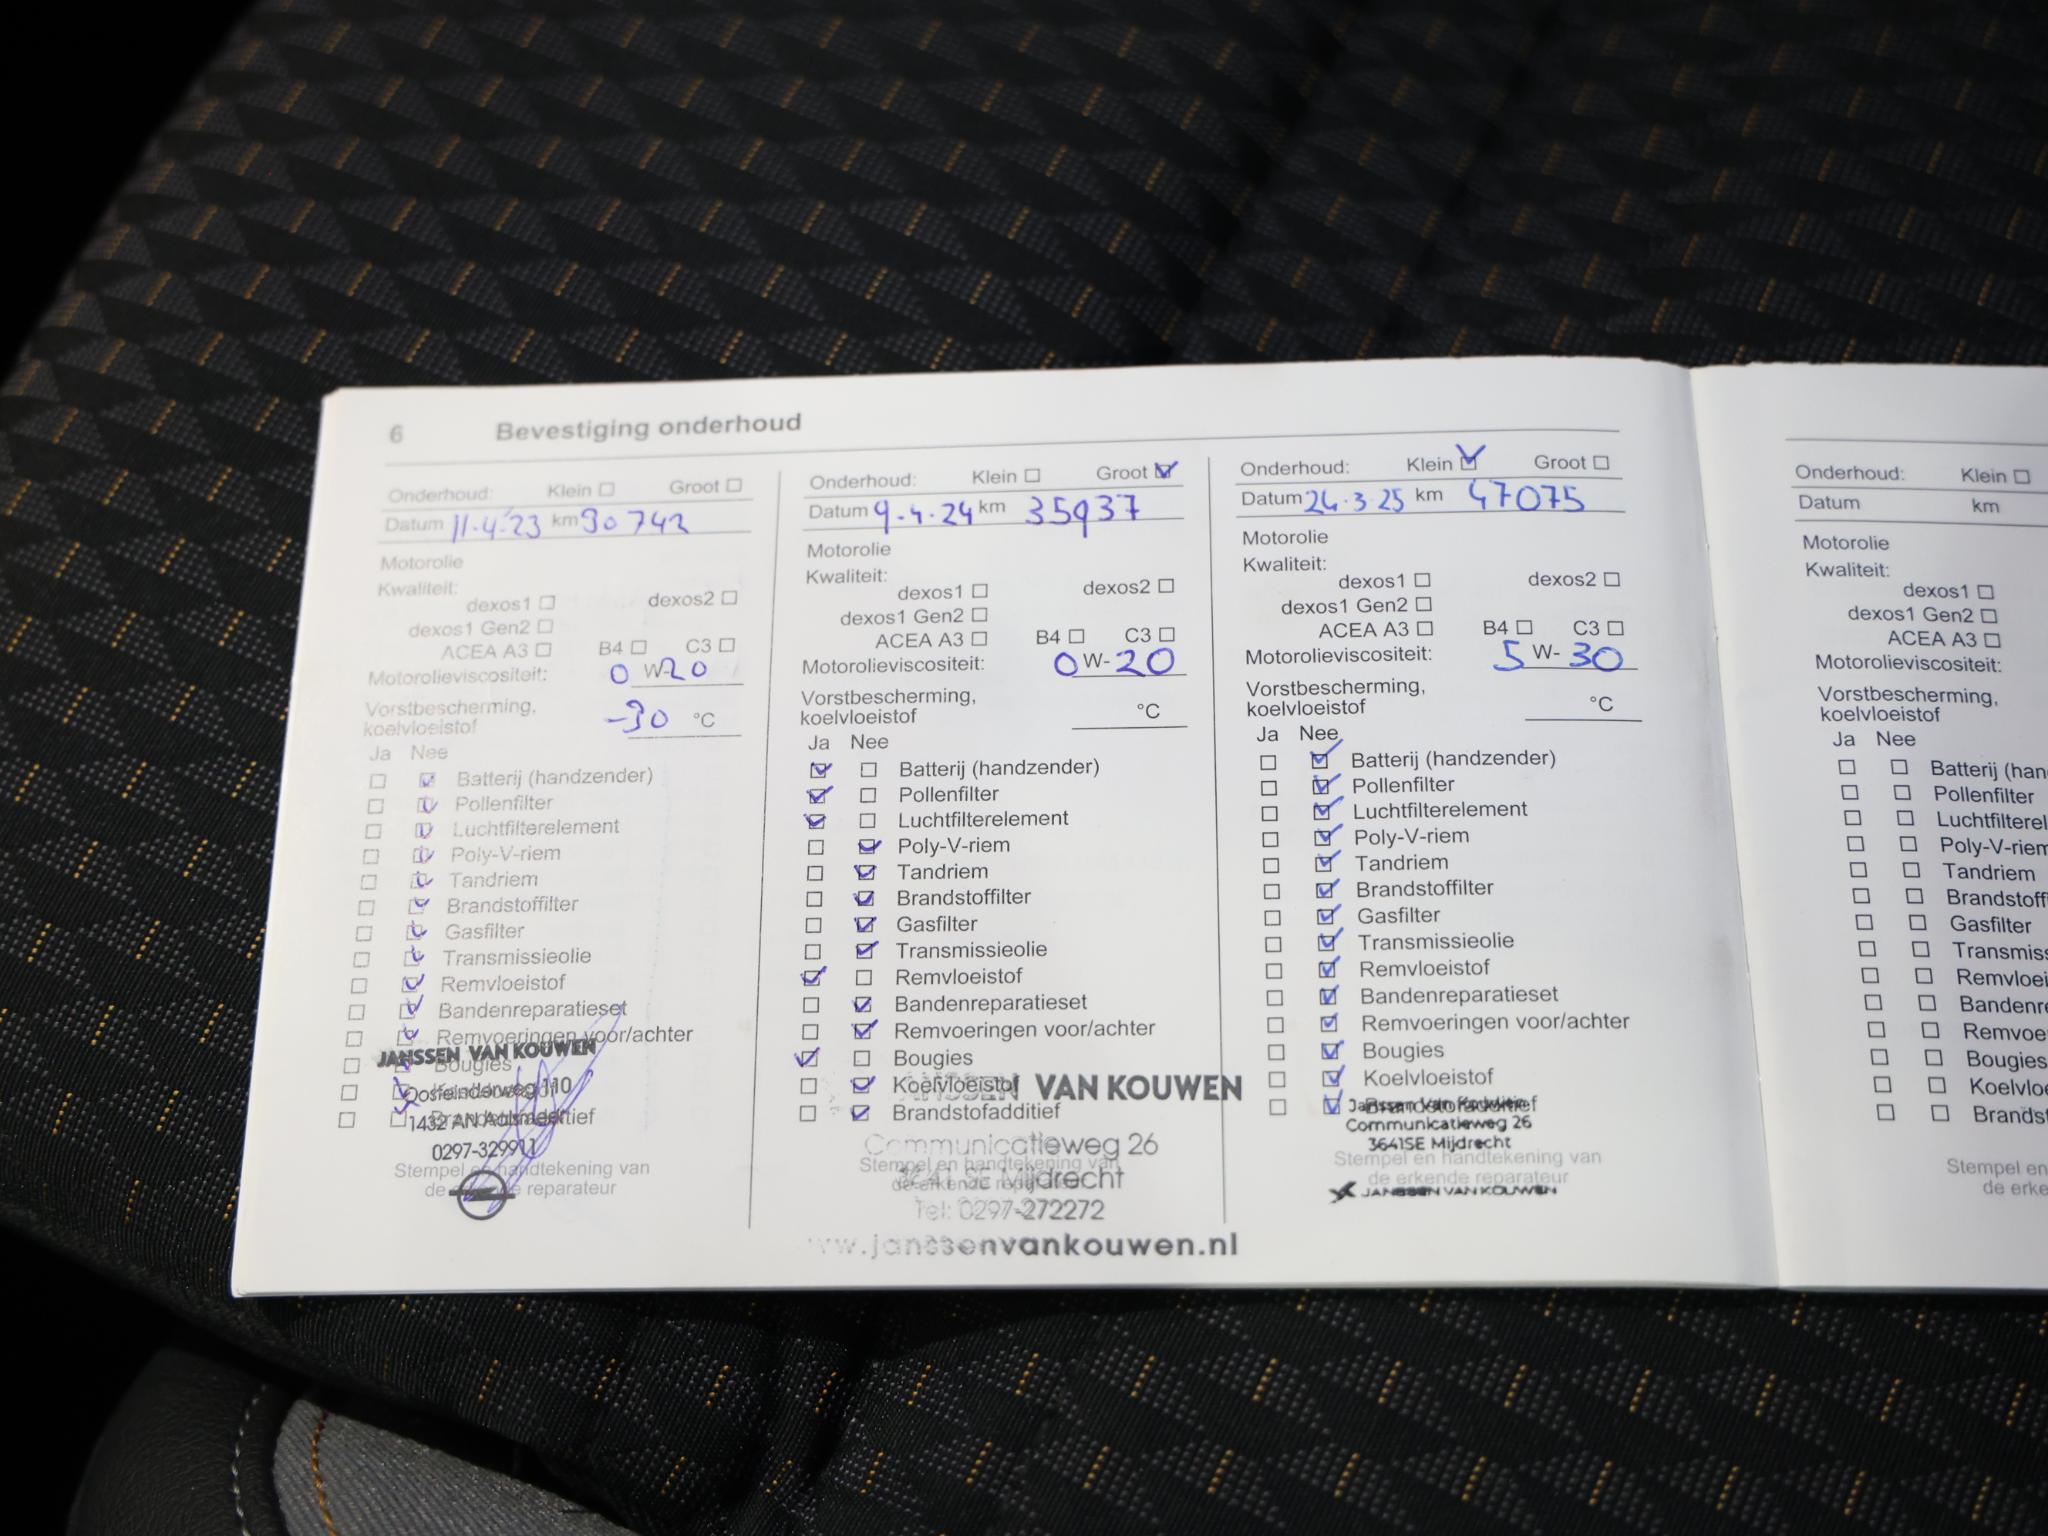 6 Bevestiging onderhoud
Onderhoud: Klein Groot
Datum 11-4-23 km 30742
Motorolie
Kwaliteit:
dexos1 dexos2
dexos1 Gen2
ACEA A3 B4 C3
Motorolieviscositeit: 0 W-20
Vorstbescherming,
koelvloeistof -30 °C
Ja Nee
Batterij (handzender)
Pollenfilter
Luchtfilterelement
Poly-V-riem
Tandriem
Brandstoffilter
Gasfilter
Transmissieolie
Remvloeistof
Bandenreparatieset
Remvoeringen voor/achter
JANSSEN VAN KOUWEN
Bougies
Oosteinderweg 110
1432 AN Aalsmeer
0297-329911
Stempel en handtekening van
de erkende reparateur
Onderhoud: Klein Groot
Datum 9-4-24 km 35937
Motorolie
Kwaliteit:
dexos1 dexos2
dexos1 Gen2
ACEA A3 B4 C3
Motorolieviscositeit: 0 W-20
Vorstbescherming,
koelvloeistof °C
Ja Nee
Batterij (handzender)
Pollenfilter
Luchtfilterelement
Poly-V-riem
Tandriem
Brandstoffilter
Gasfilter
Transmissieolie
Remvloeistof
Bandenreparatieset
Remvoeringen voor/achter
Bougies
Koelvloeistof
JANSSEN VAN KOUWEN
Brandstofadditief
Communicatieweg 26
Stempel en handtekening van
3641 SE Mijdrecht
de erkende reparateur
Tel: 0297-272272
www.janssenvankouwen.nl
Onderhoud: Klein Groot
Datum 24-3-25 km 47075
Motorolie
Kwaliteit:
dexos1 dexos2
dexos1 Gen2
ACEA A3 B4 C3
Motorolieviscositeit: 5 W-30
Vorstbescherming,
koelvloeistof °C
Ja Nee
Batterij (handzender)
Pollenfilter
Luchtfilterelement
Poly-V-riem
Tandriem
Brandstoffilter
Gasfilter
Transmissieolie
Remvloeistof
Bandenreparatieset
Remvoeringen voor/achter
Bougies
Koelvloeistof
Brandstofadditief
Janssen Van Kouwen
Communicatieweg 26
3641SE Mijdrecht
Stempel en handtekening van
de erkende reparateur
JANSSEN VAN KOUWEN
Onderhoud: Klein
Datum km
Motorolie
Kwaliteit:
dexos1
dexos1 Gen2
ACEA A3
Motorolieviscositeit:
Vorstbescherming,
koelvloeistof
Ja Nee
Batterij (han
Pollenfilter
Luchtfilterel
Poly-V-riem
Tandriem
Brandstoff
Gasfilter
Transmiss
Remvloei
Bandenre
Remvoe
Bougies
Koelvlo
Brandst
Stempel en
de erke